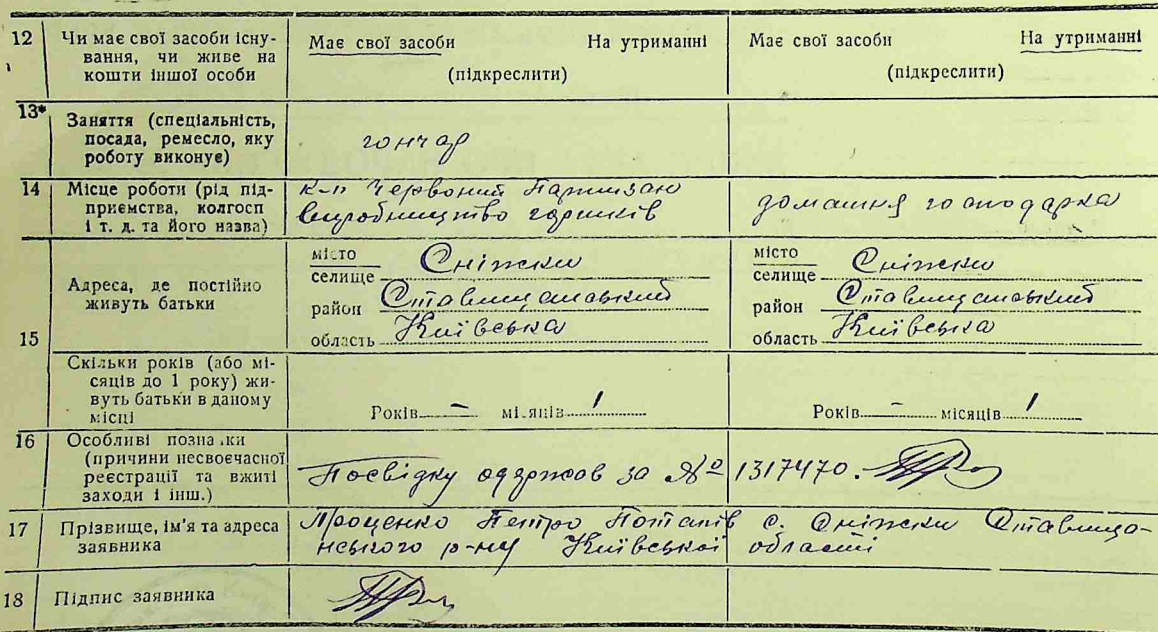 12 Чи має свої засоби існу-
вання, чи живе на
кошти іншої особи
Має свої засоби На утриманні
(підкреслити)
Має свої засоби На утриманні
(підкреслити)
13* Заняття (спеціальність,
посада, ремесло, яку
роботу виконує)
гончар
14 Місце роботи (рід під-
приємства, колгосп
і т. д. та його назва)
к-п Червоний Партизан
виробництво горшків
домашня господарка
15 Адреса, де постійно
живуть батьки
місто
селище Сніжки
район Ставищанський
область Київська
місто
селище Сніжки
район Ставищанський
область Київська
Скільки років (або мі-
сяців до 1 року) жи-
вуть батьки в даному
місці
Років - місяців 1
Років - місяців 1
16 Особливі позначки
(причини несвоєчасної
реєстрації та вжиті
заходи і інш.)
Посвідку одержов за № 1317470.
17 Прізвище, ім'я та адреса
заявника
Проценко Петро Потапів с. Сніжки Ставища-
нського р-ну Київської області
18 Підпис заявника